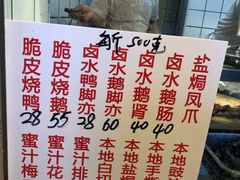 500克
脆皮烧鸭 28
脆皮烧鹅 55
卤水鸭脚亦 28
卤水鹅脚亦 60
卤水鹅肾 40
卤水鹅肠 40
盐焗凤爪
蜜汁梅
蜜汁花
蜜汁排
本地白切
本地盐
本地手
本地豉